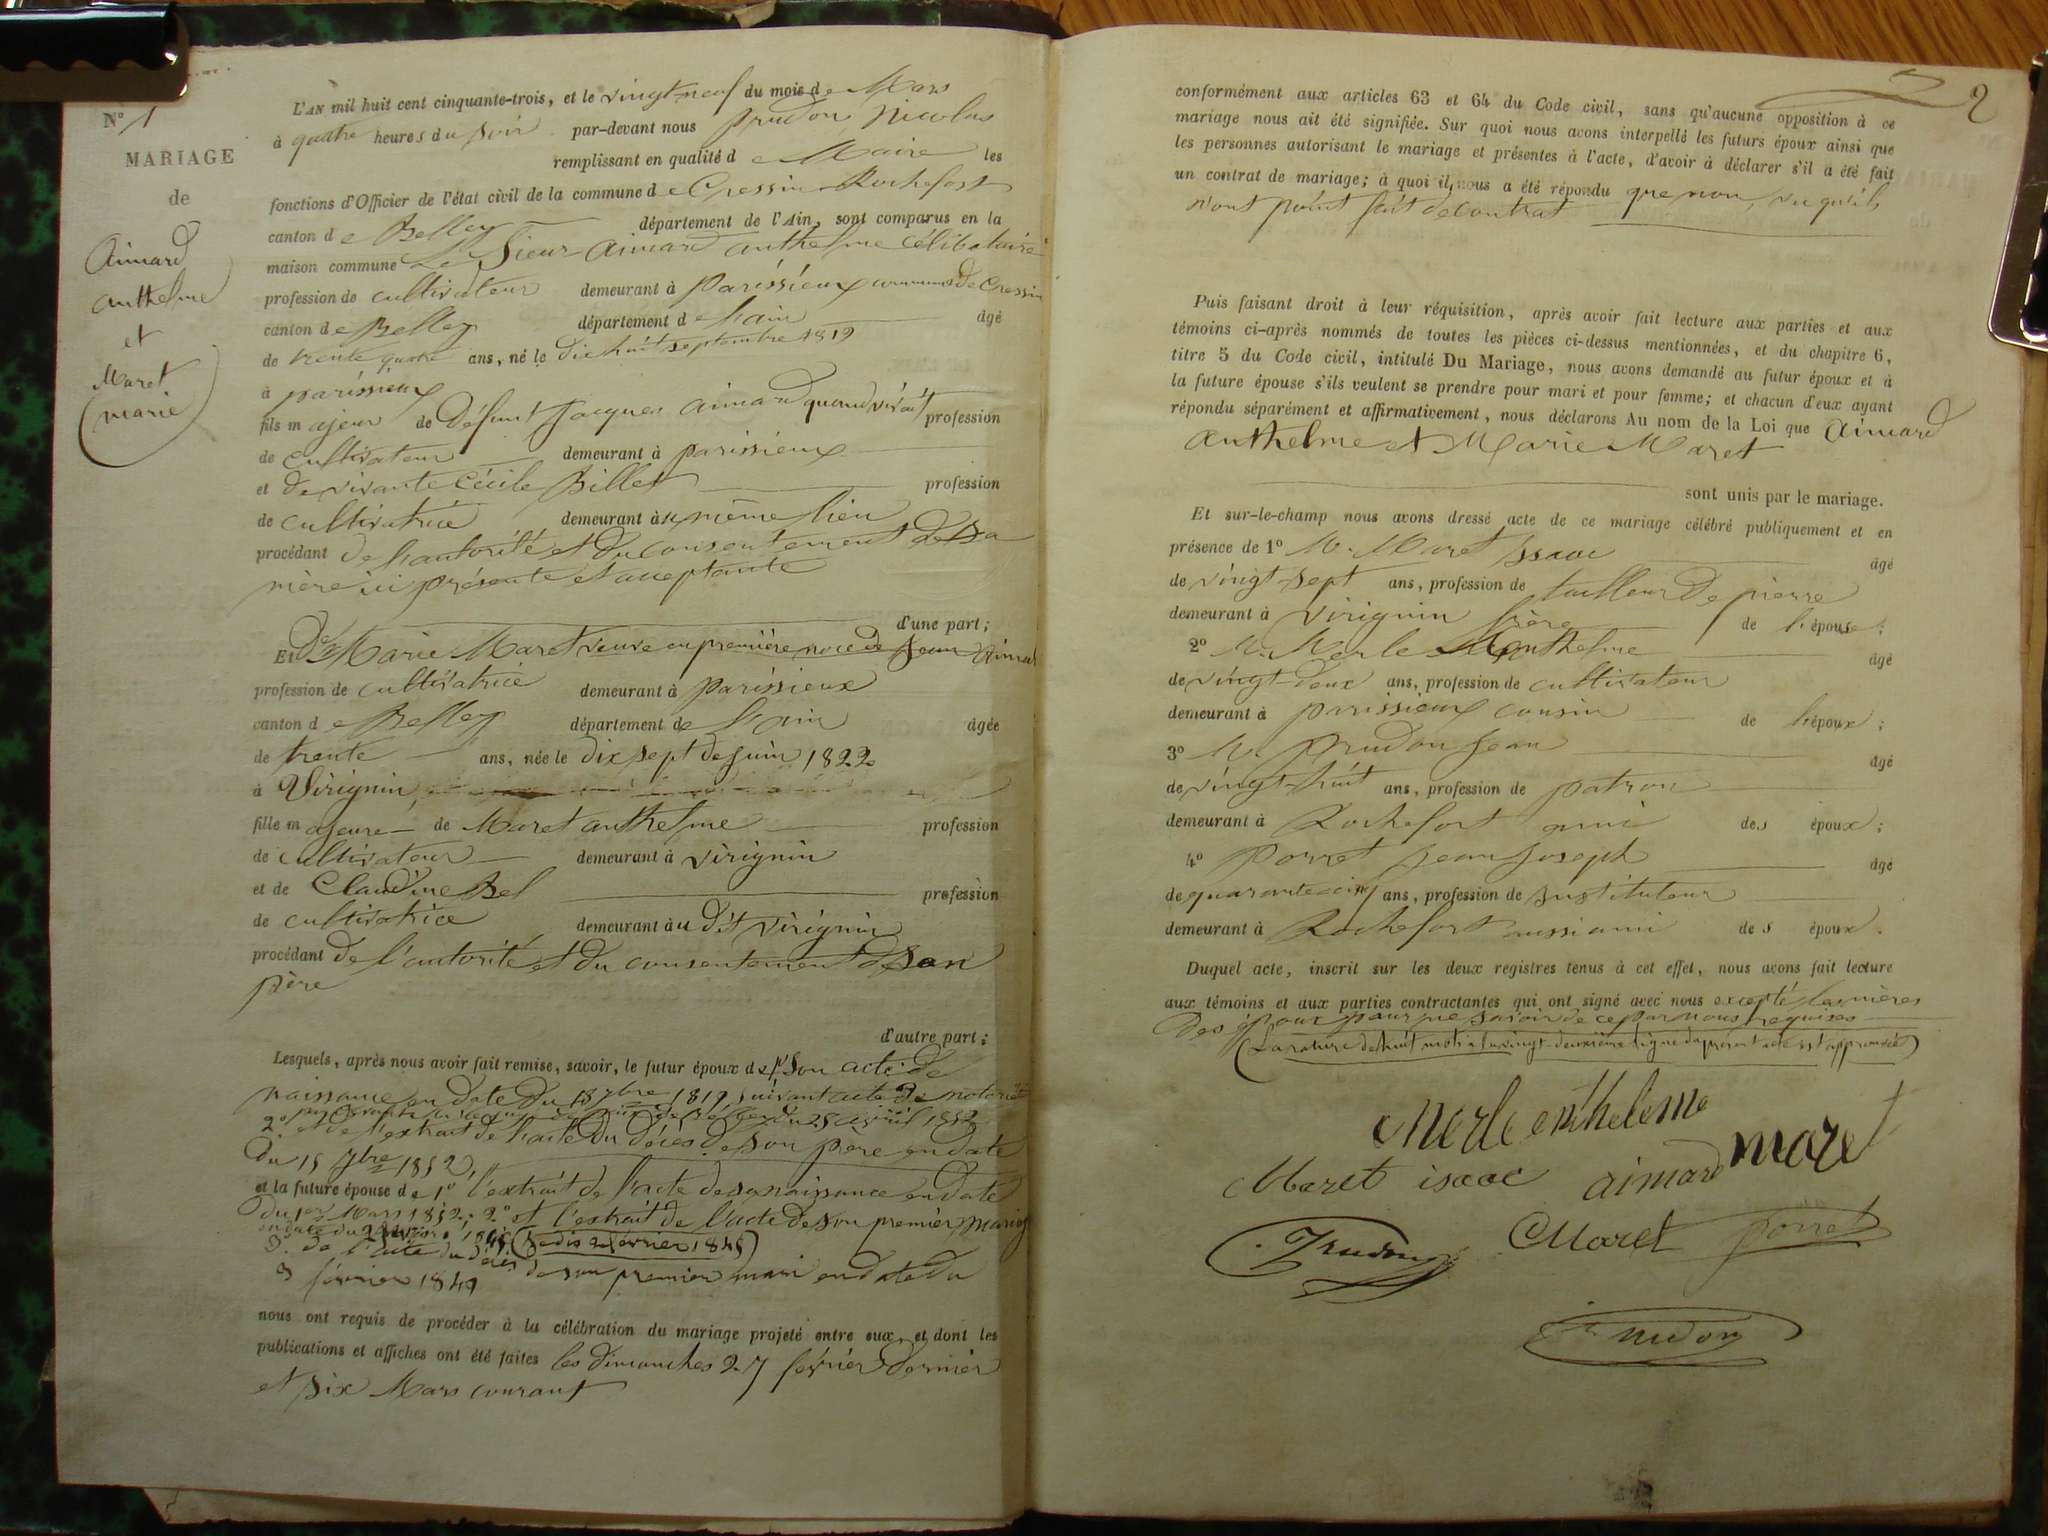 N° 1
MARIAGE
de
Aimard
anthelme
et
Maret
marie
L'AN mil huit cent cinquante-trois, et le vingt neuf du mois de Mars
à quatre heures du soir par-devant nous prudon Nicolas
remplissant en qualité de Maire les
fonctions d'Officier de l'état civil de la commune de Cressin Rochefort
canton de Belley département de l'Ain, sont comparus en la
maison commune Le Sieur aimard anthelme célibataire
profession de cultivateur demeurant à parissieux commune de Cressin
canton de Belley département de l'ain âgé
de trente quatre ans, né le dix huit septembre 1819
à parissieux
fils majeur de Défunt Jacques aimard quand vivait profession
de cultivateur demeurant à parissieux
et de vivante Cécile Billet profession
de cultivatrice demeurant au même lieu
procédant de l'autorité et du consentement de sa
mère ici présente et acceptante
d'une part;
Et Marie Maret veuve en première noce de Jean Aimard
profession de cultivatrice demeurant à parissieux
canton de Belley département de l'ain âgée
de trente ans, née le dix sept de juin 1822
à Virignin
fille majeure de Maret anthelme profession
de cultivateur demeurant à virignin
et de Claudine Bel profession
de cultivatrice demeurant au dit virignin
procédant de l'autorité et du consentement de son
père
d'autre part;
Lesquels, après nous avoir fait remise, savoir, le futur époux de 1° son acte de
naissance en date du 18 7bre 1819 suivant acte de notoriété
2° et de l'extrait de l'acte du décès de son père en date
du 15 7bre 1852,
et la future épouse de 1° l'extrait de l'acte de sa naissance en date
du 1er Mars 1852. 2° et l'extrait de l'acte de son premier mariage
en date du (Je dis 2 février 1845)
3° de l'acte du décès de son premier mari en date du
3 février 1849
nous ont requis de procéder à la célébration du mariage projeté entre eux, et dont les
publications et affiches ont été faites les dimanches 27 février dernier
et six Mars courant
2
conformément aux articles 63 et 64 du Code civil, sans qu'aucune opposition à ce
mariage nous ait été signifiée. Sur quoi nous avons interpellé les futurs époux ainsi que
les personnes autorisant le mariage et présentes à l'acte, d'avoir à déclarer s'il a été fait
un contrat de mariage; à quoi il nous a été répondu que non, vu qu'ils
n'ont point fait de contrat
Puis faisant droit à leur réquisition, après avoir fait lecture aux parties et aux
témoins ci-après nommés de toutes les pièces ci-dessus mentionnées, et du chapitre 6,
titre 5 du Code civil, intitulé Du Mariage, nous avons demandé au futur époux et à
la future épouse s'ils veulent se prendre pour mari et pour femme; et chacun d'eux ayant
répondu séparément et affirmativement, nous déclarons Au nom de la Loi que Aimard
anthelme et Marie Maret
sont unis par le mariage.
Et sur-le-champ nous avons dressé acte de ce mariage célébré publiquement et en
présence de 1° M. Maret Isaac âgé
de vingt-sept ans, profession de tailleur de pierre
demeurant à virignin frère de l'épouse;
2° M. Merle anthelme âgé
de vingt-deux ans, profession de cultivateur
demeurant à parissieux cousin de l'époux;
3° M. prudon Jean âgé
de vingt-huit ans, profession de patron
demeurant à Rochefort ami des époux;
4° porret Jean Joseph âgé
de quarante cinq ans, profession de Instituteur
demeurant à Rochefort aussi ami des époux.
Duquel acte, inscrit sur les deux registres tenus à cet effet, nous avons fait lecture
aux témoins et aux parties contractantes qui ont signé avec nous excepté les mères
des époux pour ne savoir de ce par nous requises
(La rature de huit mots à la vingt-deuxième ligne du présent acte est approuvée)
Merle entheleme
Maret isaac aimard maret
Prudon Maret porret
Prudon